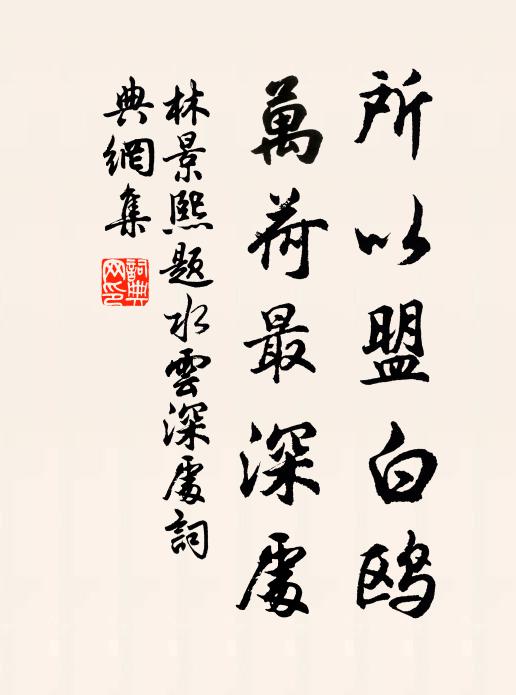 所以盟白鸥
萬荷最深處
林景熙题水雲深處詞
典網集
詞典网印